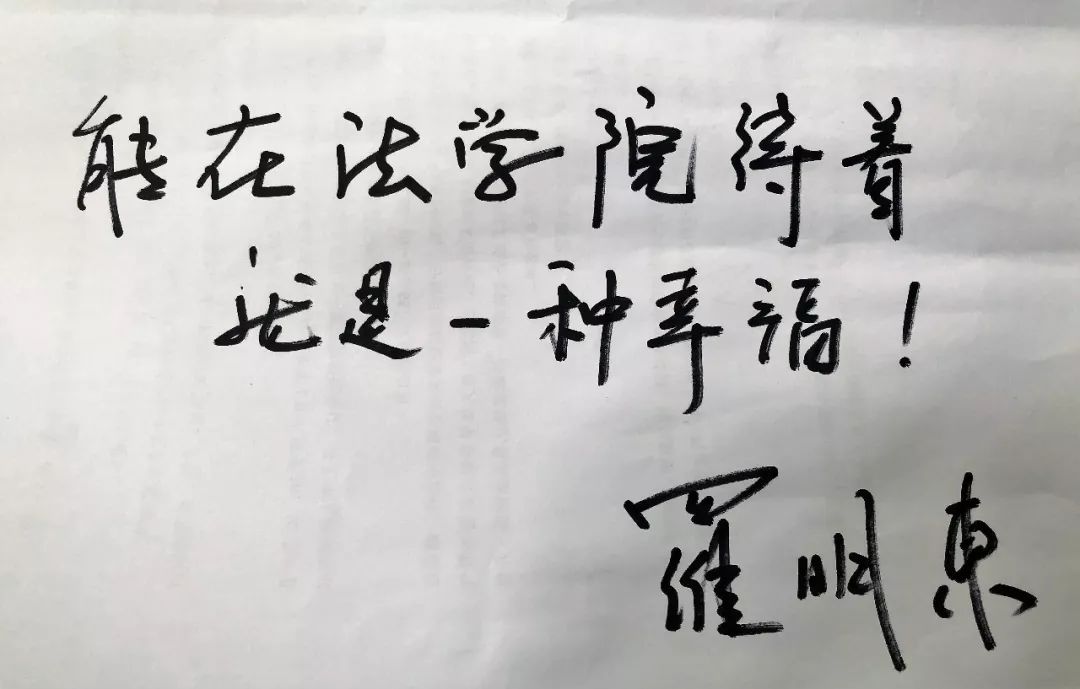 能在法学院待着
就是一种幸福！
羅明東